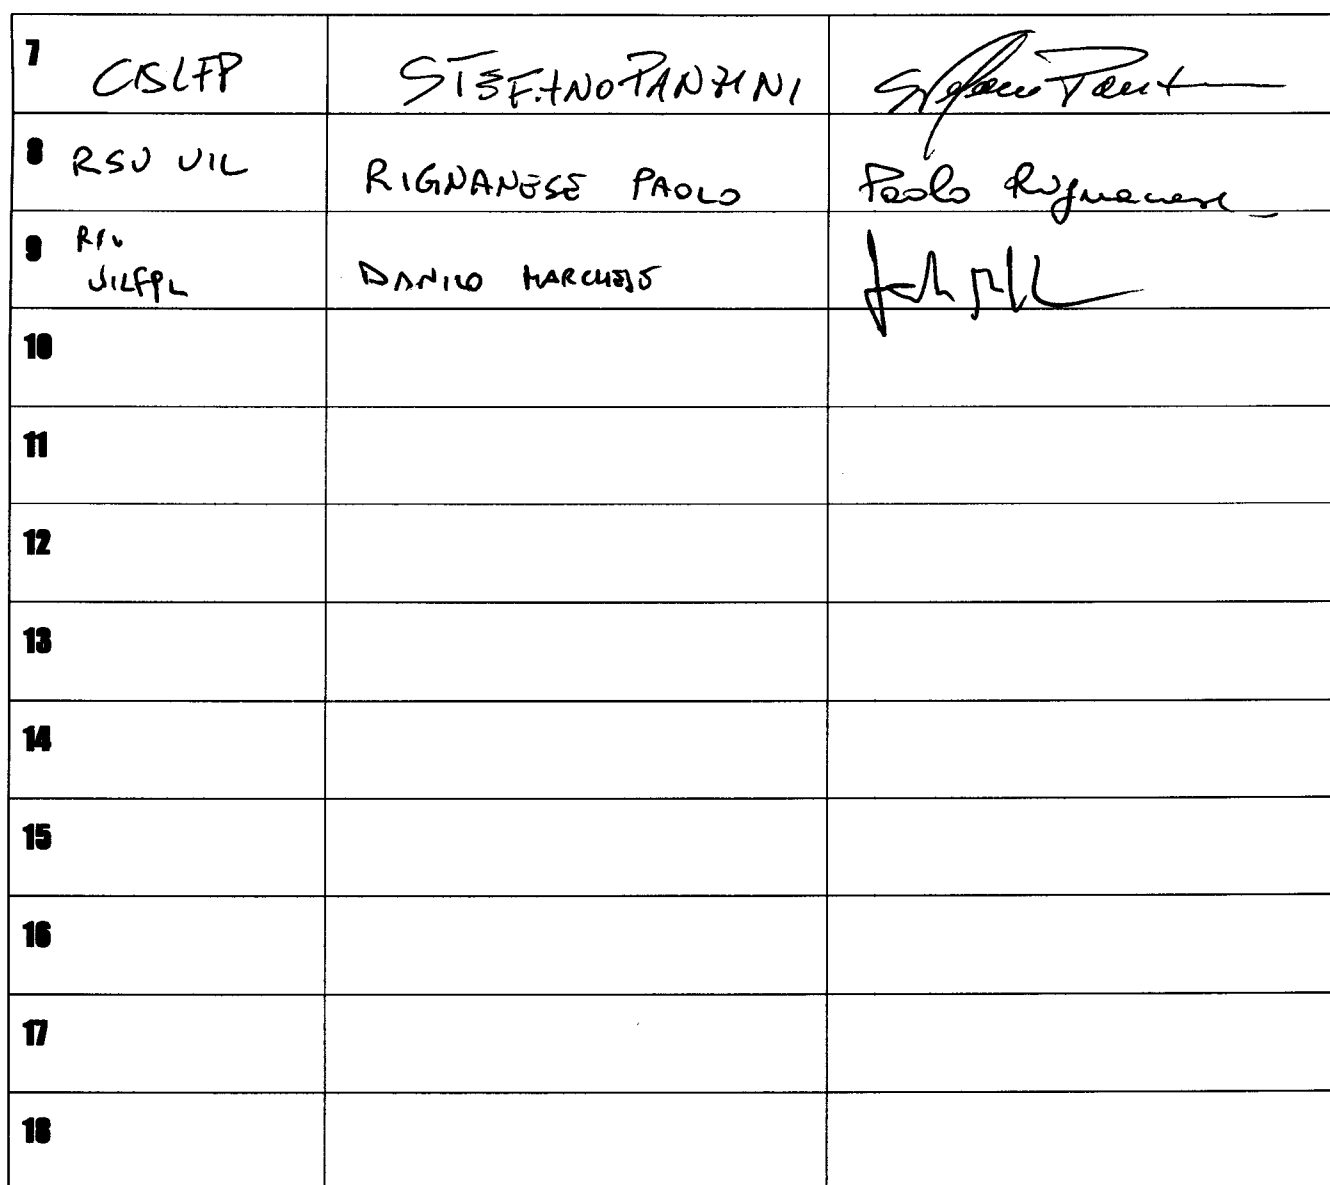 7 CISLFP STEFANO PANZINI Stefano Panz
8 RSU UIL RIGNANESE PAOLO Paolo Rignanese
9 RSU
UILFPL DANILO MARCHESE
10
11
12
13
14
15
16
17
18